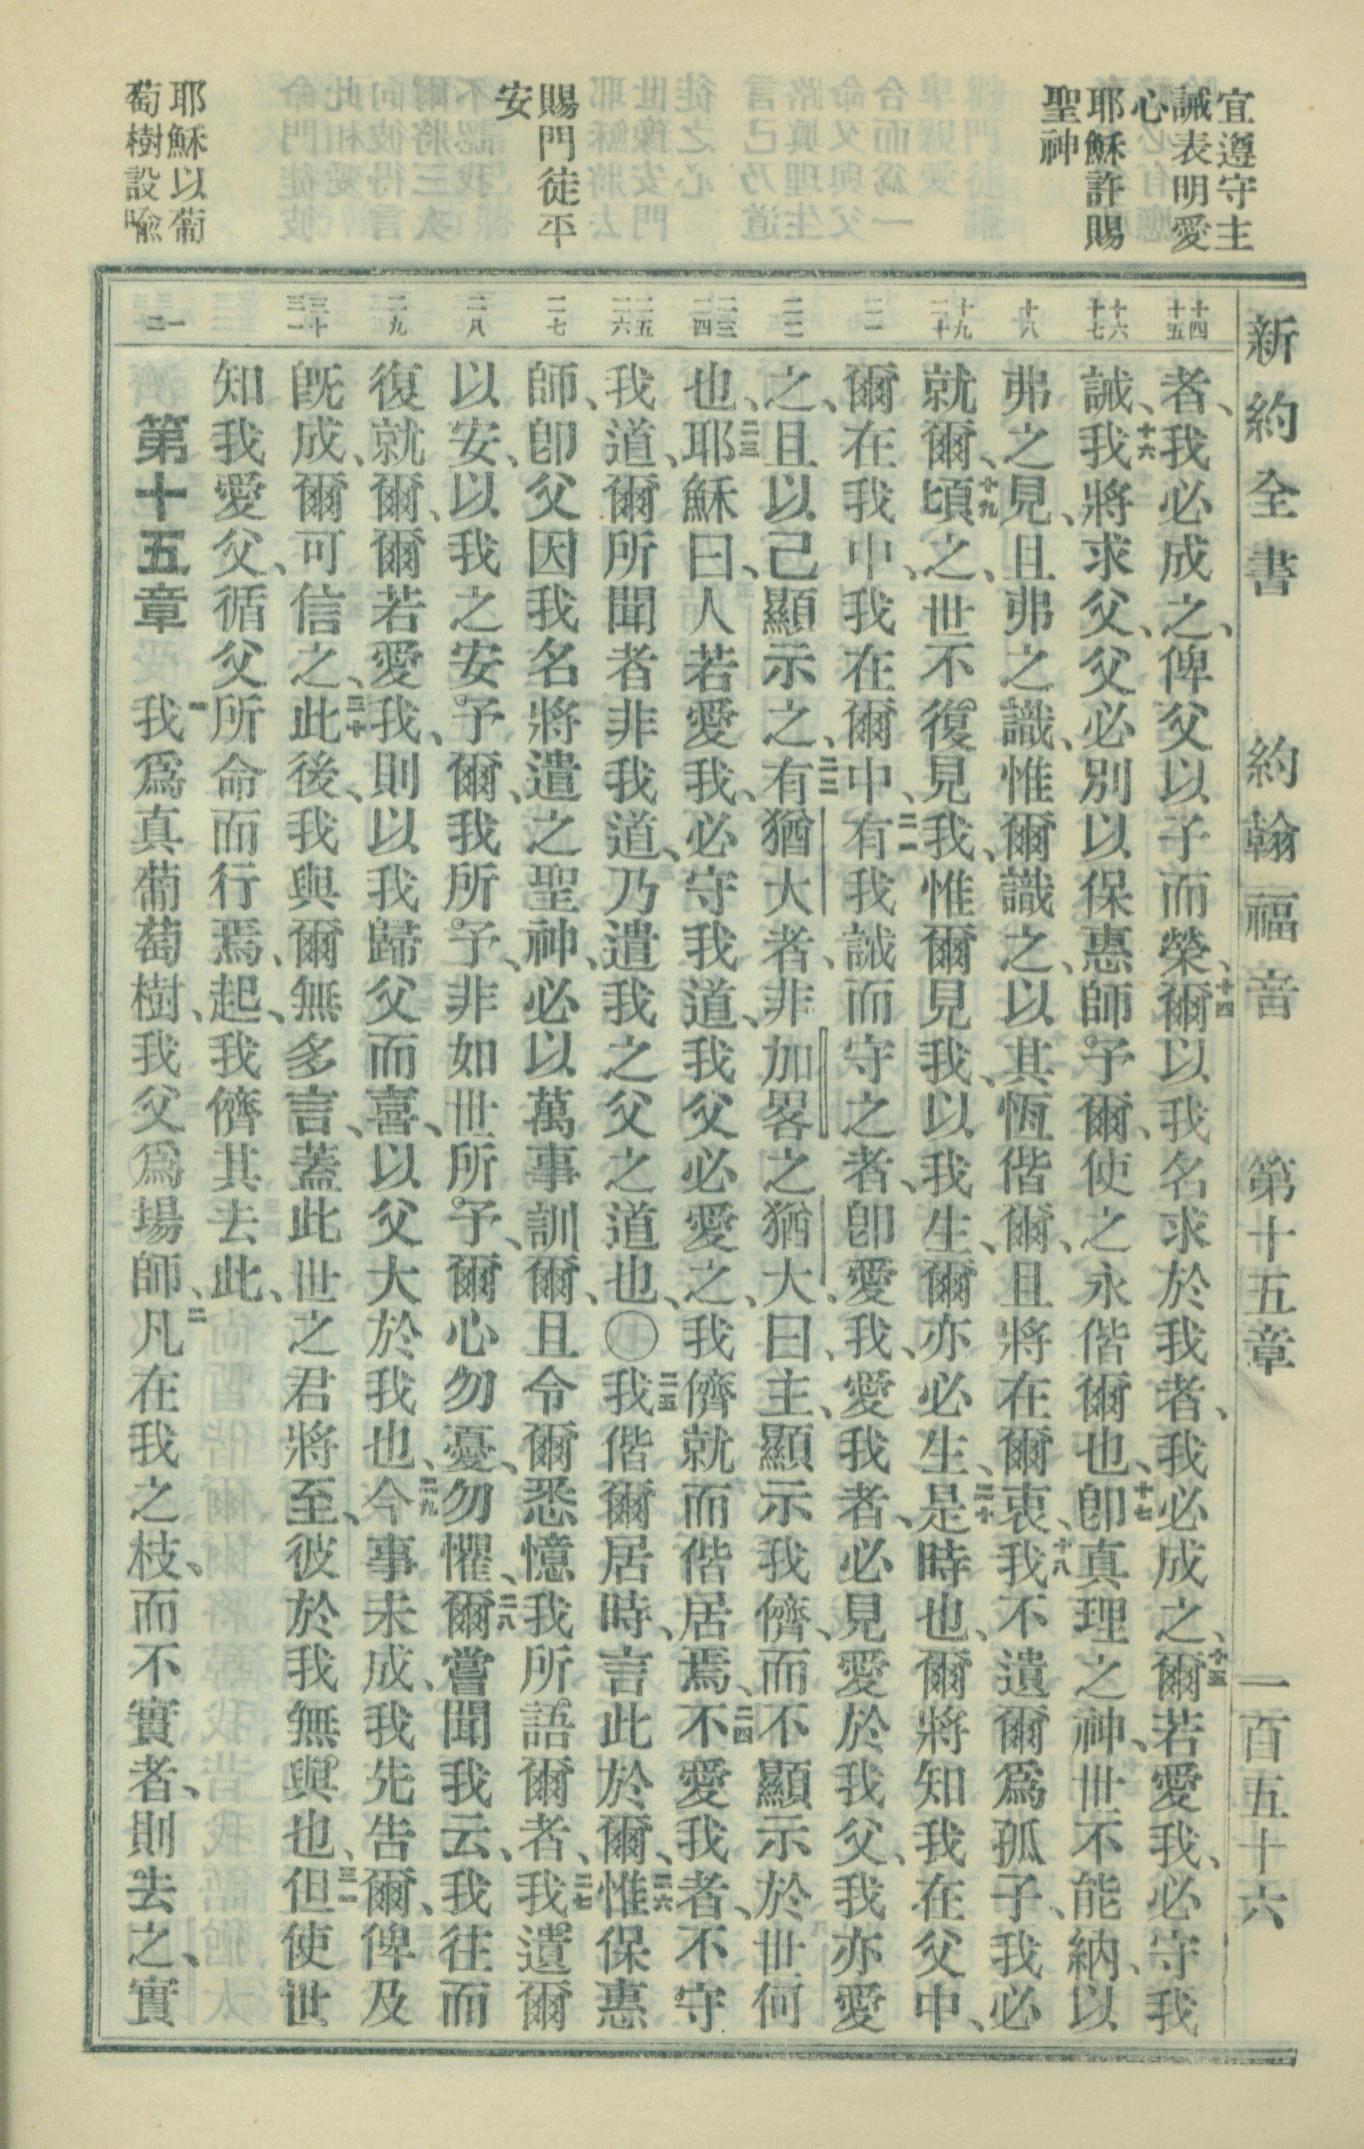 宜遵守主
誡表明愛
心
耶穌許賜
聖神
賜門徒平
安
耶穌以葡
萄樹設喩
新約全書 約翰福音 第十五章 一百五十六
十四
十五
者、我必成之、俾父以子而榮、十四爾以我名求於我者、我必成之、十五爾若愛我、必守我
十六
十七
誡、十六我將求父、父必別以保惠師予爾、使之永偕爾也、十七卽真理之神、世不能納、以
十八
弗之見、且弗之識、惟爾識之、以其恆偕爾、且將在爾衷、十八我不遺爾爲孤子、我必
十九
二十
就爾、十九頃之、世不復見我、惟爾見我、以我生、爾亦必生、二十是時也、爾將知我在父中、
二一
爾在我中、我在爾中、二一有我誡而守之者、卽愛我、愛我者、必見愛於我父、我亦愛
二二
之、且以己顯示之、二二有猶大者、非加畧之猶大、曰、主、顯示我儕、而不顯示於世何
二三
二四
也、二三耶穌曰、人若愛我、必守我道、我父必愛之、我儕就而偕居焉、二四不愛我者、不守
二五
二六
我道、爾所聞者非我道、乃遣我之父之道也、〇二五我偕爾居時、言此於爾、二六惟保惠
二七
師、卽父因我名將遣之聖神、必以萬事訓爾、且令爾悉憶我所語爾者、二七我遺爾
二八
以安、以我之安予爾、我所予、非如世所予、爾心勿憂、勿懼、二八爾嘗聞我云、我往而
二九
復就爾、爾若愛我、則以我歸父而喜、以父大於我也、二九今事未成、我先告爾、俾及
三十
三一
旣成、爾可信之、三十此後、我與爾無多言、蓋此世之君將至、彼於我無與也、三一但使世
知我愛父、循父所命而行焉、起、我儕其去此、
一
二
第十五章 一我爲真葡萄樹、我父爲場師、二凡在我之枝、而不實者、則去之、實